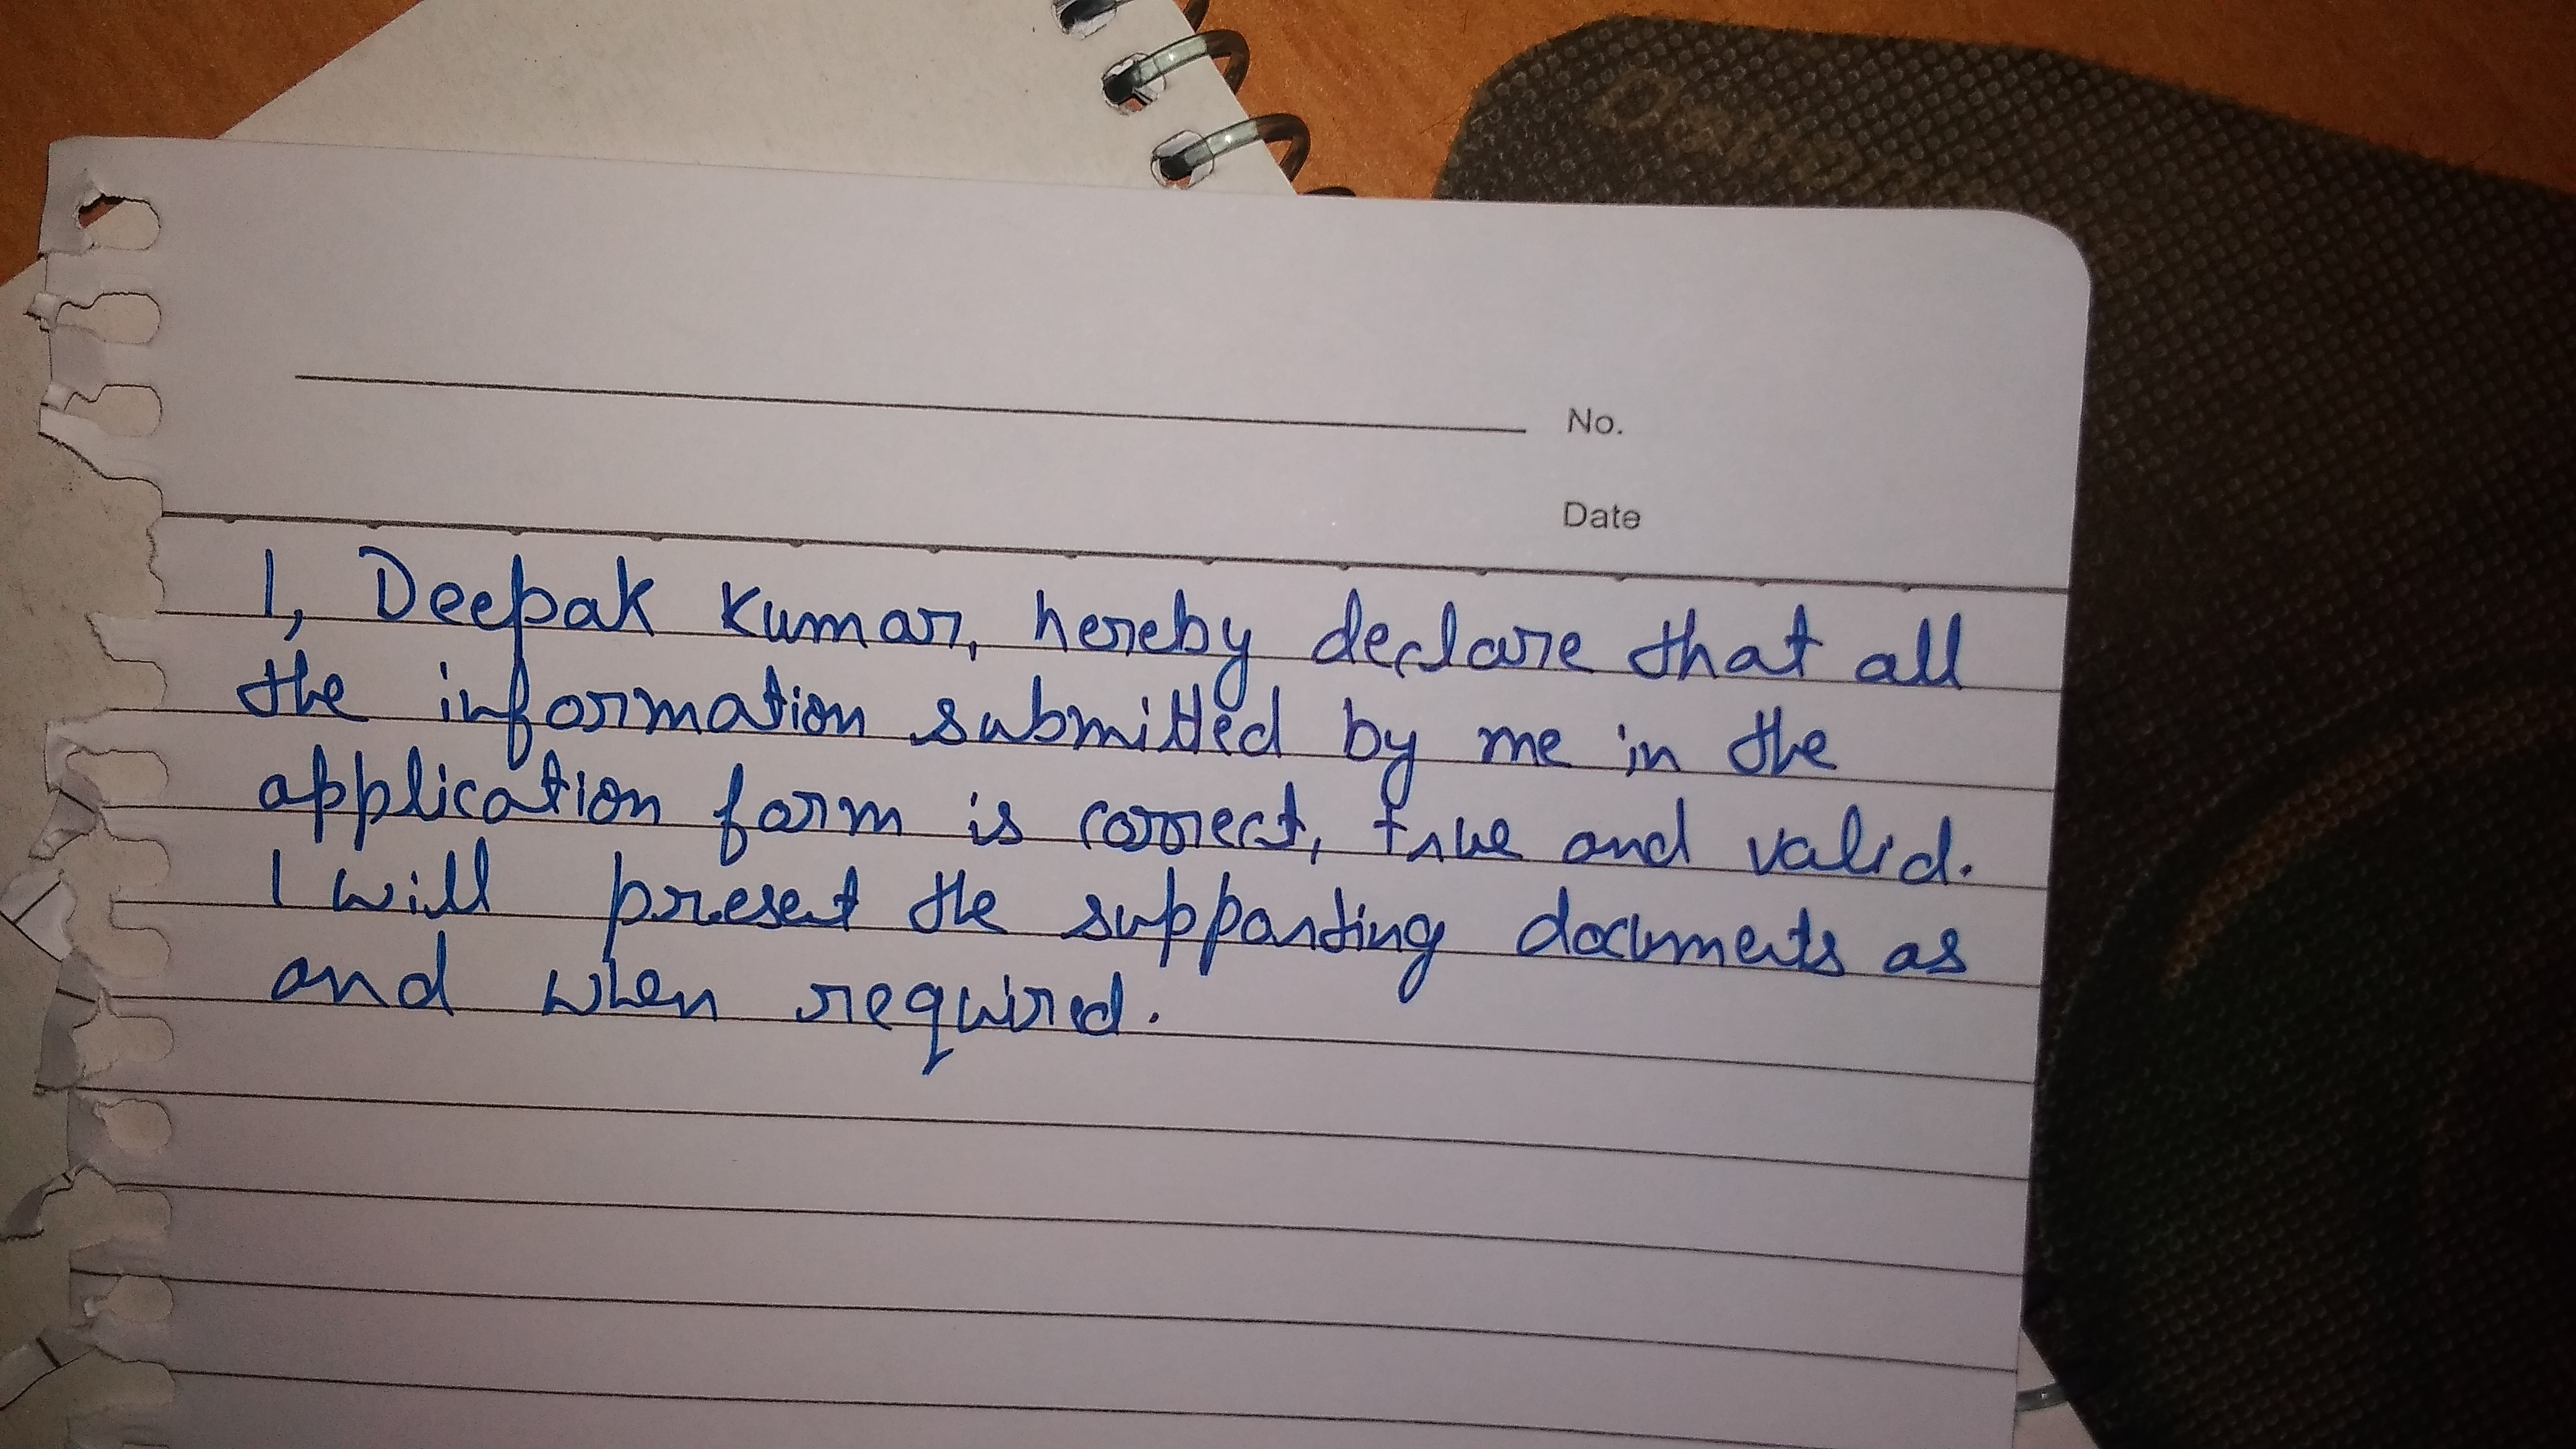 No.
Date
I, Deepak Kumar, hereby declare that all
the information submitted by me in the
application form is correct, true and valid.
I will present the supporting documents as
and when required.